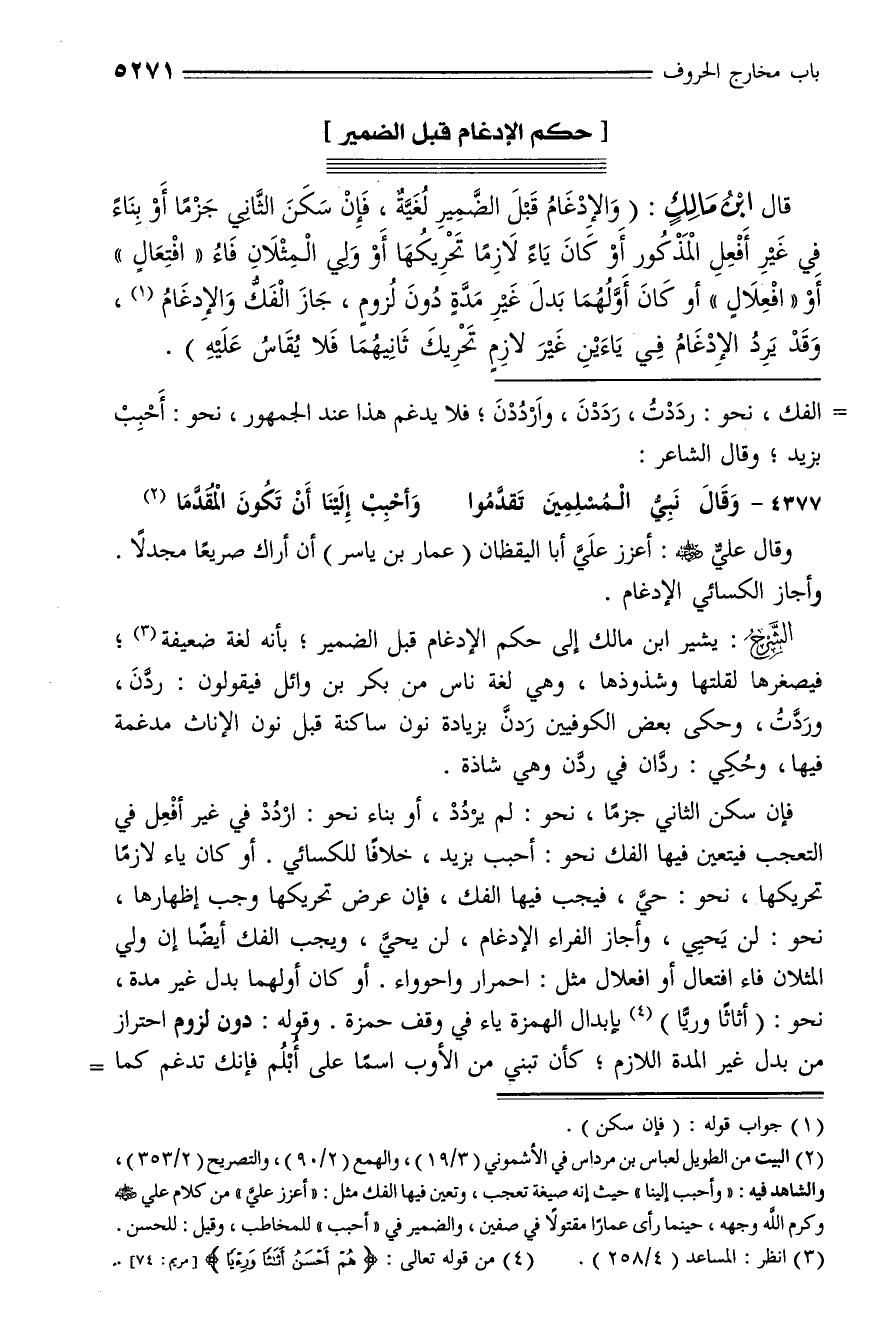 باب مخارج الحروف ٥٢٧١
[ حكم الإدغام قبل الضمير ]
قال ابْنُ مَالِكٍ : ( وَالإِدْغَامُ قَبْلَ الضَّمِيرِ لُغَيَّةٌ ، فَإِنْ سَكَنَ الثَّانِي جَزْمًا أَوْ بِنَاءً
فِي غَيْرِ أَفْعِلِ الْمَذْكُور أَوْ كَانَ يَاءً لَازِمًا تَحْرِيكُهَا أَوْ وَلِي الْـمِثْلَانِ فَاءُ « افْتِعَالٍ »
أَوْ « افْعِلَالٍ » أو كَانَ أَوَّلُهُمَا بَدلَ غَيْرِ مَدَّةٍ دُونَ لُزومٍ ، جَازَ الْفَكُّ وَالإِدغَامُ (١) ،
وَقَدْ يَرِدُ الإِدْغَامُ فِـي يَاءَيْنِ غَيْرَ لازِمٍ تَحْرِيكَ ثَانِيهُمَا فَلا يُقَاسُ عَلَيْهِ ) .
= الفك ، نحو : ردَدْتُ ، رَدَدْنَ ، واَرْدُدْنَ ؛ فلا يدغم هذا عند الجمهور ، نحو : أَحْبِبْ
بزيد ؛ وقال الشاعر :
٤٣٧٧ - وَقَالَ نَبِيُّ الْـمُسْلِمِينَ تَقدَّمُوا وَأحْبِبْ إِلَيْنَا أَنْ تَكُونَ الْمُقَدَّمَا (٢)
وقال عليٌّ ﵁ : أعزز علَيَّ أبا اليقظان ( عمار بن ياسر ) أن أراك صريعًا مجدلًا .
وأجاز الكسائي الإدغام .
الشَّرْحُ : يشير ابن مالك إلى حكم الإدغام قبل الضمير ؛ بأنه لغة ضعيفة (٣) ؛
فيصغرها لقلتها وشذوذها ، وهي لغة ناس من بكر بن وائل فيقولون : ردَّنَ ،
ورَدَّتُ ، وحكى بعض الكوفيين رَدنَّ بزيادة نون ساكنة قبل نون الإناث مدغمة
فيها ، وحُكِي : ردَّان في ردَّن وهي شاذة .
فإن سكن الثاني جزمًا ، نحو : لم يرْدُدْ ، أو بناء نحو : ارْدُدْ في غير أفْعِل في
التعجب فيتعين فيها الفك نحو : أحبب بزيد ، خلافًا للكسائي . أو كان ياء لازمًا
تحريكها ، نحو : حيَّ ، فيجب فيها الفك ، فإن عرض تحريكها وجب إظهارها ،
نحو : لن يَحيِي ، وأجاز الفراء الإدغام ، لن يحيَّ ، ويجب الفك أيضًا إن ولي
المثلان فاء افتعال أو افعلال مثل : احمرار واحوواء . أو كان أولهما بدل غير مدة ،
نحو : ( أثاثًا وريًّا ) (٤) بإبدال الهمزة ياء في وقف حمزة . وقوله : دون لزوم احتراز
من بدل غير المدة اللازم ؛ كأن تبني من الأوب اسمًا على أُبْلُم فإنك تدغم كما =
(١) جواب قوله : ( فإن سكن ) .
(٢) البيت من الطويل لعباس بن مرداس في الأشموني (١٩/٣) ، والهمع (٩٠/٢) ، والتصريح (٣٥٣/٢) ،
والشاهد فيه : « وأحبب إلينا » حيث إنه صيغة تعجب ، وتعين فيها الفك مثل : « أعزز عليَّ » من كلام علي ﵁
وكرم اللَّه وجهه ، حينما رأى عمارًا مقتولًا في صفين ، والضمير في « أحبب » للمخاطب ، وقيل : للحسن .
(٣) انظر : المساعد ( ٢٥٨/٤ ) . (٤) من قوله تعالى : ﴿ هُمْ أَحْسَنُ أَثَٰثًا وَرِءْيًا ﴾ [ مريم : ٧٤ ] .